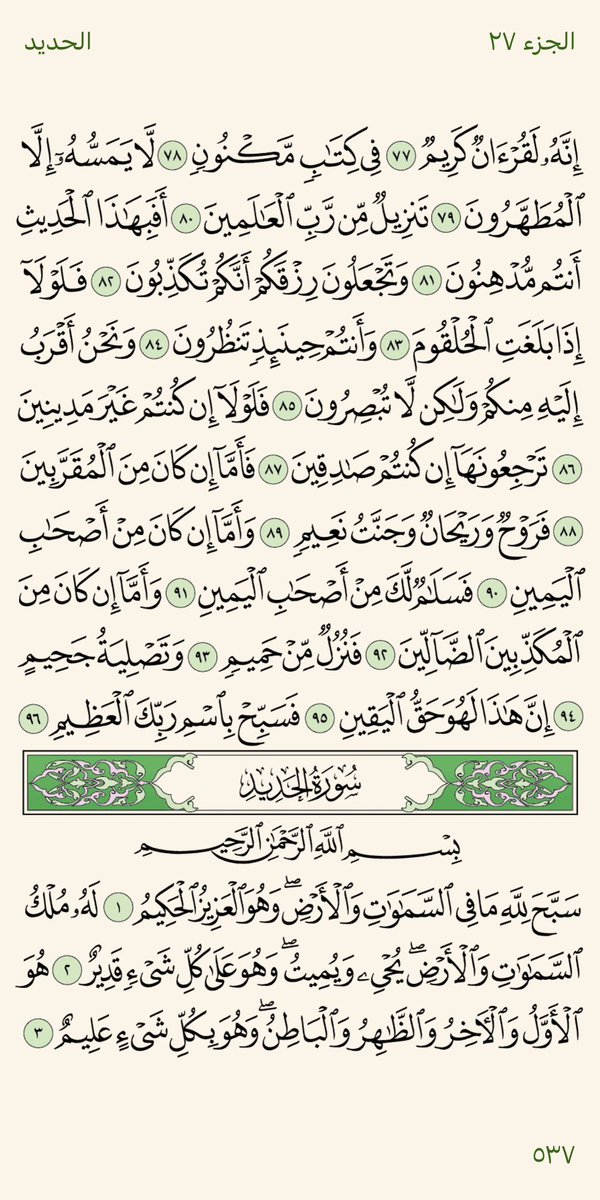 الجزء ٢٧ الحديد
إِنَّهُۥ لَقُرْءَانٌ كَرِيمٌ ٧٧ فِى كِتَٰبٍ مَّكْنُونٍ ٧٨ لَّا يَمَسُّهُۥٓ إِلَّا
ٱلْمُطَهَّرُونَ ٧٩ تَنزِيلٌ مِّن رَّبِّ ٱلْعَٰلَمِينَ ٨٠ أَفَبِهَٰذَا ٱلْحَدِيثِ
أَنتُم مُّدْهِنُونَ ٨١ وَتَجْعَلُونَ رِزْقَكُمْ أَنَّكُمْ تُكَذِّبُونَ ٨٢ فَلَوْلَآ
إِذَا بَلَغَتِ ٱلْحُلْقُومَ ٨٣ وَأَنتُمْ حِينَئِذٍ تَنظُرُونَ ٨٤ وَنَحْنُ أَقْرَبُ
إِلَيْهِ مِنكُمْ وَلَٰكِن لَّا تُبْصِرُونَ ٨٥ فَلَوْلَآ إِن كُنتُمْ غَيْرَ مَدِينِينَ
٨٦ تَرْجِعُونَهَآ إِن كُنتُمْ صَٰدِقِينَ ٨٧ فَأَمَّآ إِن كَانَ مِنَ ٱلْمُقَرَّبِينَ
٨٨ فَرَوْحٌ وَرَيْحَانٌ وَجَنَّتُ نَعِيمٍ ٨٩ وَأَمَّآ إِن كَانَ مِنْ أَصْحَٰبِ
ٱلْيَمِينِ ٩٠ فَسَلَٰمٌ لَّكَ مِنْ أَصْحَٰبِ ٱلْيَمِينِ ٩١ وَأَمَّآ إِن كَانَ مِنَ
ٱلْمُكَذِّبِينَ ٱلضَّآلِّينَ ٩٢ فَنُزُلٌ مِّنْ حَمِيمٍ ٩٣ وَتَصْلِيَةُ جَحِيمٍ
٩٤ إِنَّ هَٰذَا لَهُوَ حَقُّ ٱلْيَقِينِ ٩٥ فَسَبِّحْ بِٱسْمِ رَبِّكَ ٱلْعَظِيمِ ٩٦
سُورَةُ الحَدِيدِ
بِسْمِ ٱللَّهِ ٱلرَّحْمَٰنِ ٱلرَّحِيمِ
سَبَّحَ لِلَّهِ مَا فِى ٱلسَّمَٰوَٰتِ وَٱلْأَرْضِ ۖ وَهُوَ ٱلْعَزِيزُ ٱلْحَكِيمُ ١ لَهُۥ مُلْكُ
ٱلسَّمَٰوَٰتِ وَٱلْأَرْضِ ۖ يُحْىِۦ وَيُمِيتُ ۖ وَهُوَ عَلَىٰ كُلِّ شَىْءٍ قَدِيرٌ ٢ هُوَ
ٱلْأَوَّلُ وَٱلْءَاخِرُ وَٱلظَّٰهِرُ وَٱلْبَاطِنُ ۖ وَهُوَ بِكُلِّ شَىْءٍ عَلِيمٌ ٣
٥٣٧